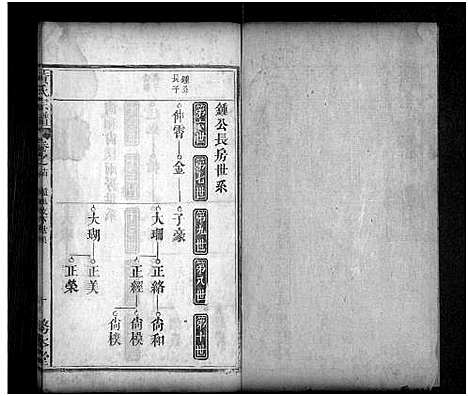 鍾公長房世系
第六世
第七世
第九世
第八世
第十世
鍾公
長子
仲霄
金
子豪
大珊
大瑚
正絡
正經
正美
正榮
尚和
尚模
尚樸
黃氏宗譜